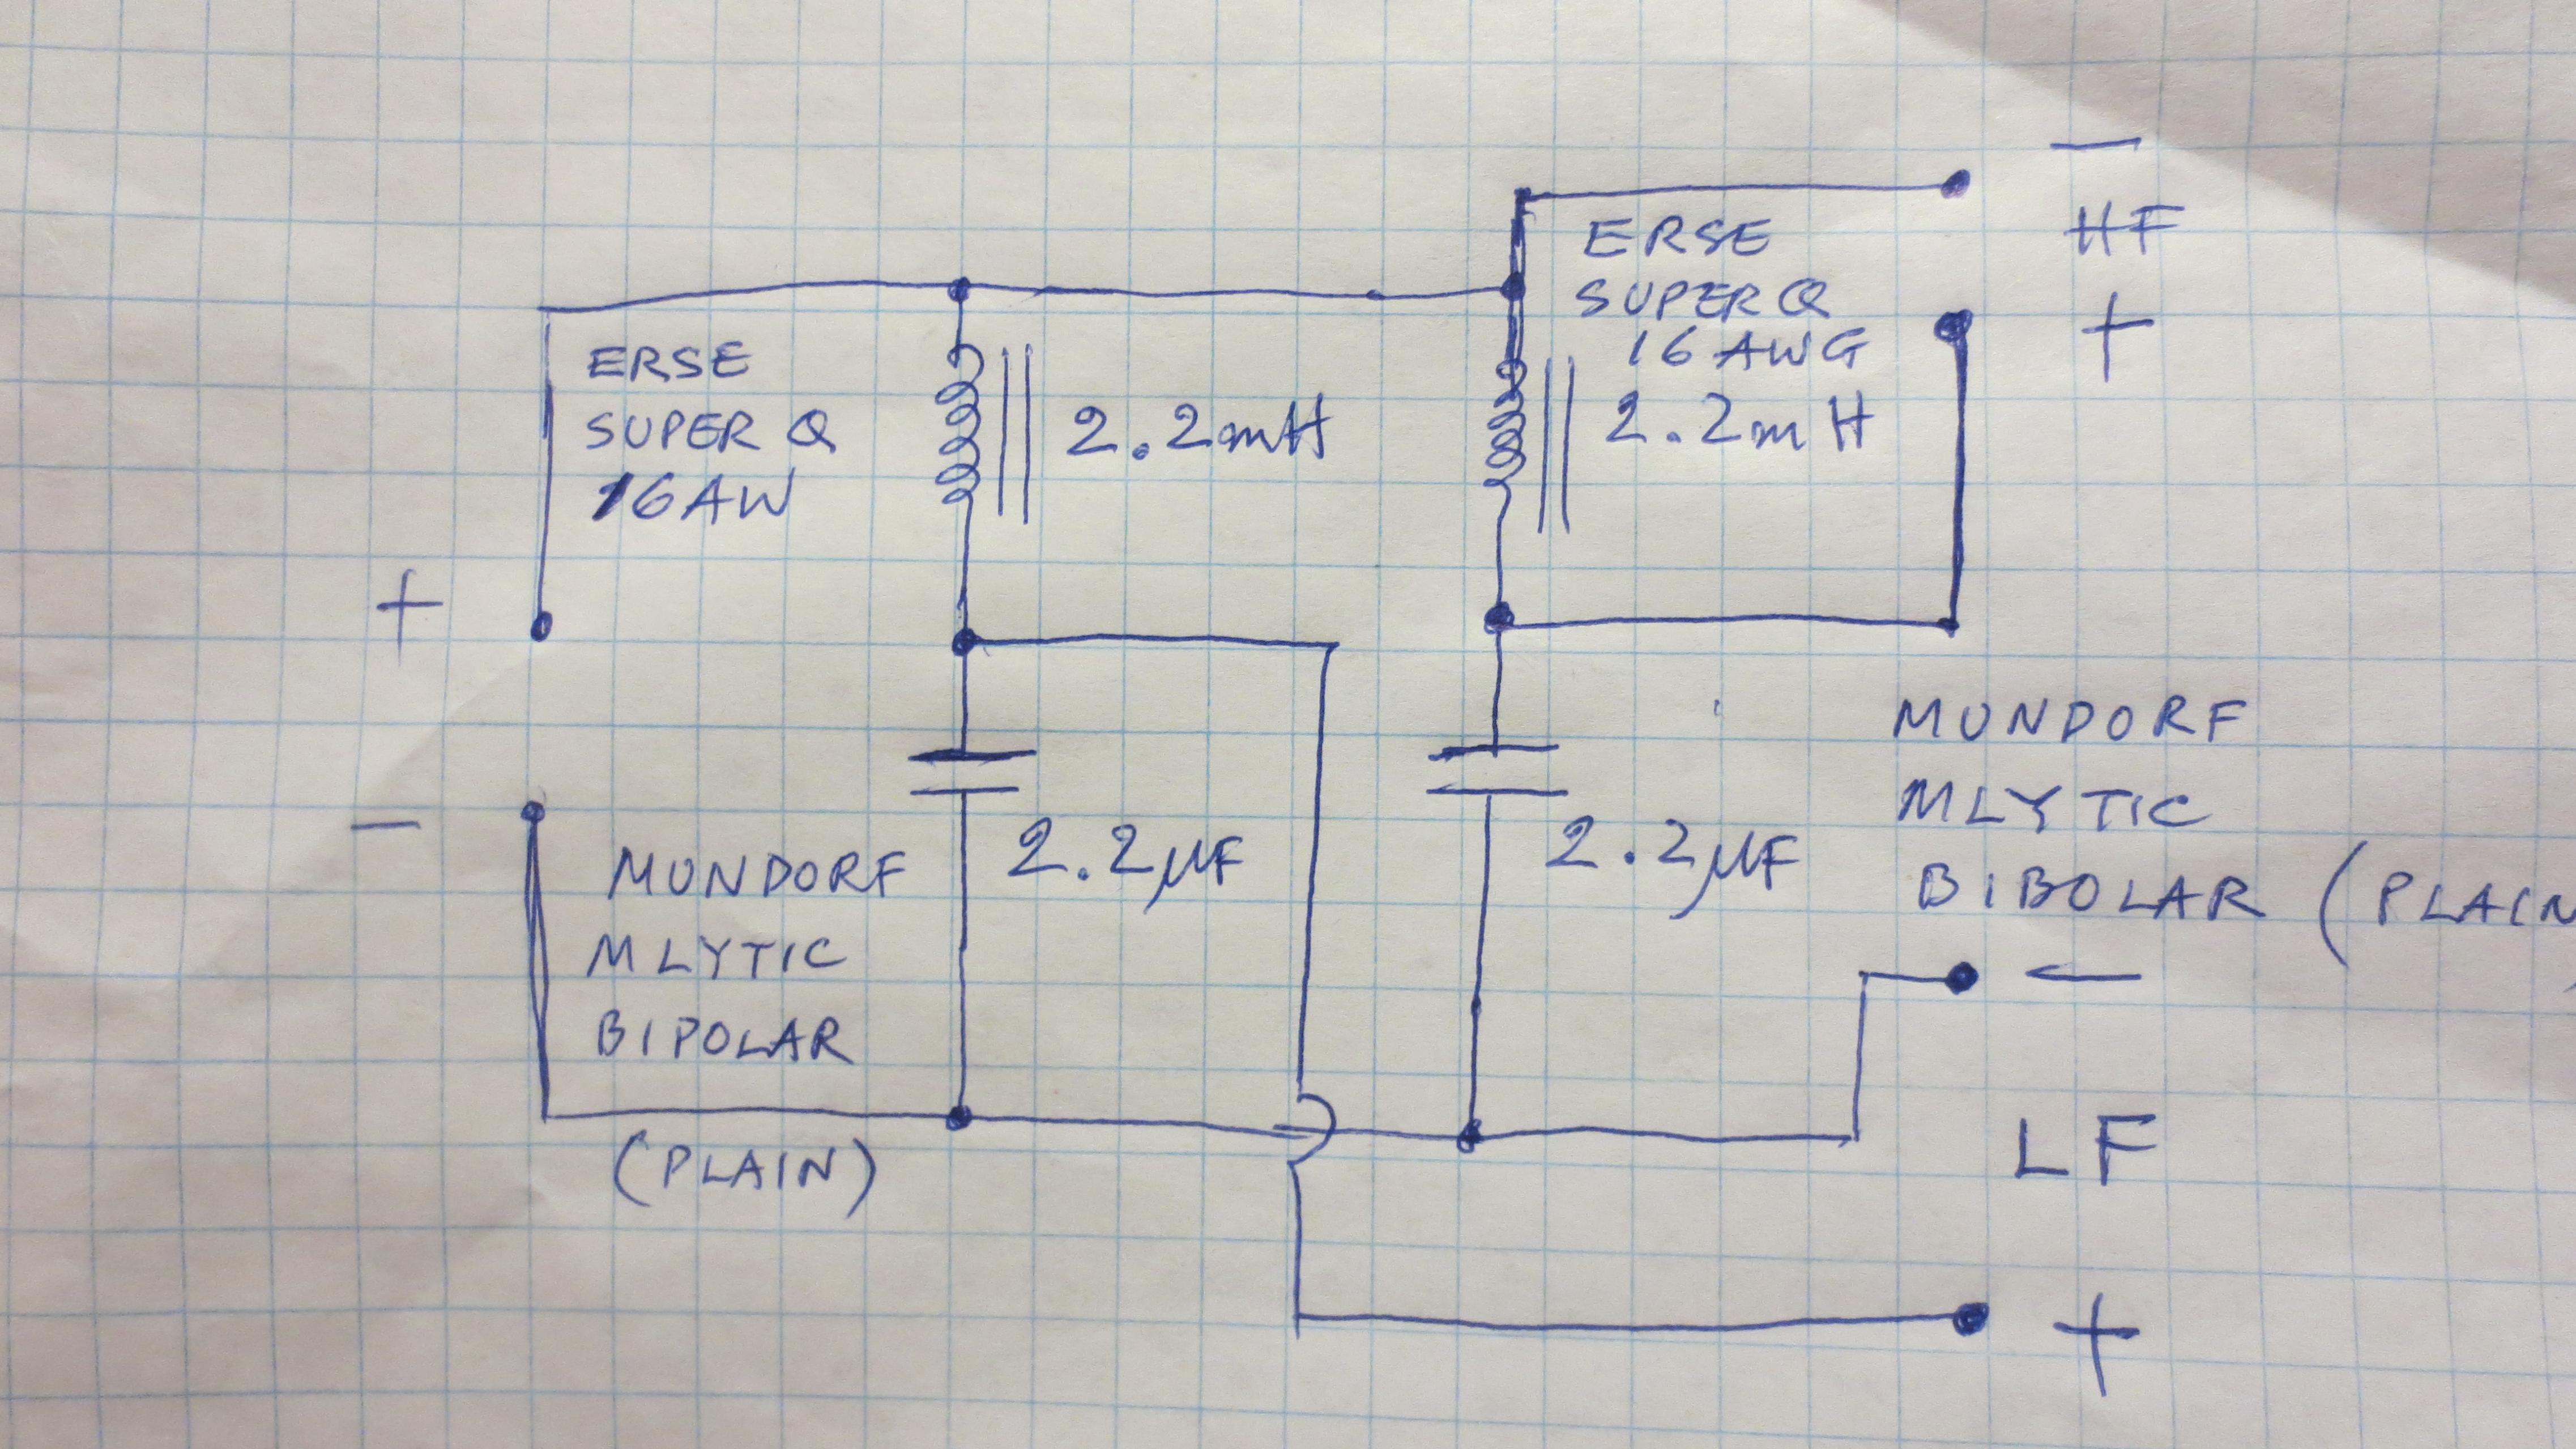 −
HF
+
ERSE
SUPER Q
16 AWG
2.2mH
ERSE
SUPER Q
16AW
2.2mH
+
−
2.2µF
MUNDORF
MLYTIC
BIPOLAR
(PLAIN)
2.2µF
MUNDORF
MLYTIC
BIBOLAR (PLAIN)
−
LF
+